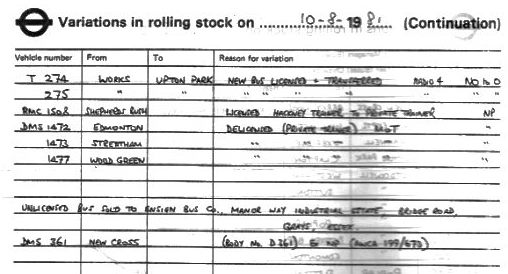 Variations in rolling stock on 10-8-1981 (Continuation)
Vehicle number From To Reason for variation
T 274 WORKS UPTON PARK NEW BUS LICENSED + TRANSFERRED RADIO 4 NO 16 O
275 " " " " " " " "
RMC 1508 SHEPHERDS BUSH LICENSED HACKNEY TRAINER TO PRIVATE TRAINER NP
DMS 1472 EDMONTON DELICENSED (PRIVATE TRAINER) MOT "
1473 STREATHAM " " " "
1477 WOOD GREEN " " " "
UNLICENSED BUS SOLD TO ENSIGN BUS CO., MANOR WAY INDUSTRIAL ESTATE BRIDGE ROAD,
GRAYS, ESSEX.
DMS 361 NEW CROSS (BODY No. D361) NP